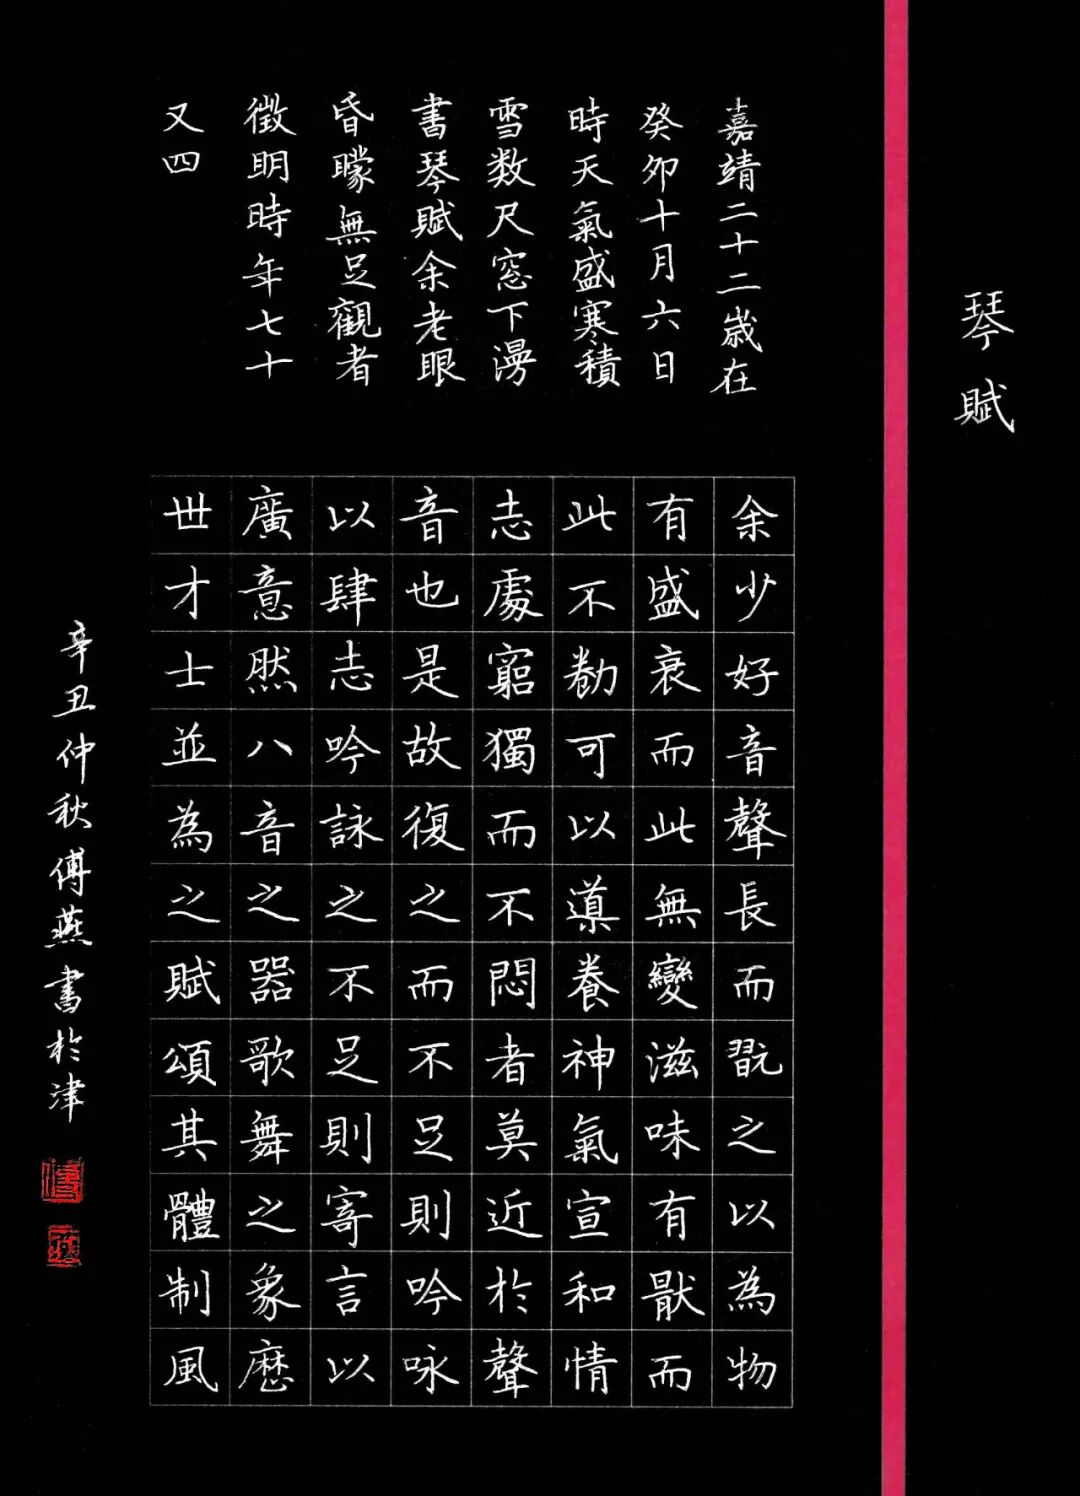 琴賦
嘉靖二十二歲在
癸卯十月六日
時天氣盛寒積
雪数尺窓下漫
書琴賦余老眼
昏矇無足觀者
徵明時年七十
又四
余少好音聲長而翫之以為物
有盛衰而此無變滋味有猒而
此不勌可以導養神氣宣和情
志處窮獨而不悶者莫近於聲
音也是故復之而不足則吟咏
以肆志吟詠之不足則寄言以
廣意然八音之器歌舞之象歴
世才士並為之賦頌其體制風
辛丑仲秋傅燕書於津